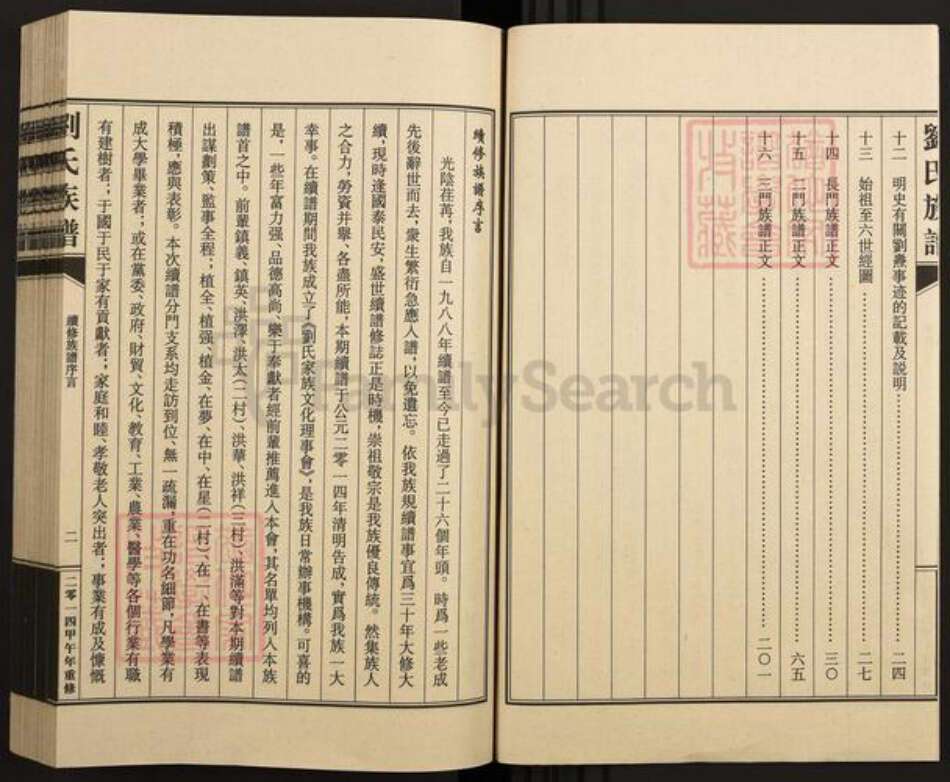 劉氏族譜
十二 明史有關劉燾事迹的記載及説明 二四
十三 始祖至六世經圖 二七
十四 長門族譜正文 三〇
十五 二門族譜正文 六五
十六 三門族譜正文 二〇一
續修族譜序言
光陰荏苒，我族自一九八八年續譜至今已走過了二十六個年頭。時爲一些老成
先後辭世而去，衆生繁衍急應入譜，以免遺忘。依我族規續譜事宜爲三十年大修大
續，現時逢國泰民安，盛世續譜修誌正是時機，崇祖敬宗是我族優良傳統。然集族人
之合力，勞資并舉、各盡所能，本期續譜于公元二零一四年清明告成，實爲我族一大
幸事。在續譜期間我族成立了《劉氏家族文化理事會》，是我族日常辦事機構。可喜的
是，一些年富力强、品德高尚、樂于奉獻者經前輩推薦進入本會，其名單均列入本族
譜首之中。前輩鎮義、鎮英、洪澤、洪太（二村）、洪華、洪祥（三村）、洪滿等對本期續譜
出謀劃策、監事全程；植全、植强、植金、在夢、在中、在星（二村）、在一、在書等表現
積極，應與表彰。本次續譜分門支系均走訪到位、無一疏漏，重在功名細節，凡學業有
成大學畢業者；或在黨委、政府、財貿、文化、教育、工業、農業、醫學等各個行業有職
有建樹者；于國于民于家有貢獻者；家庭和睦、孝敬老人突出者；事業有成及慷慨
劉氏族譜
續修族譜序言
二
二零一四甲午年重修
FamilySearch